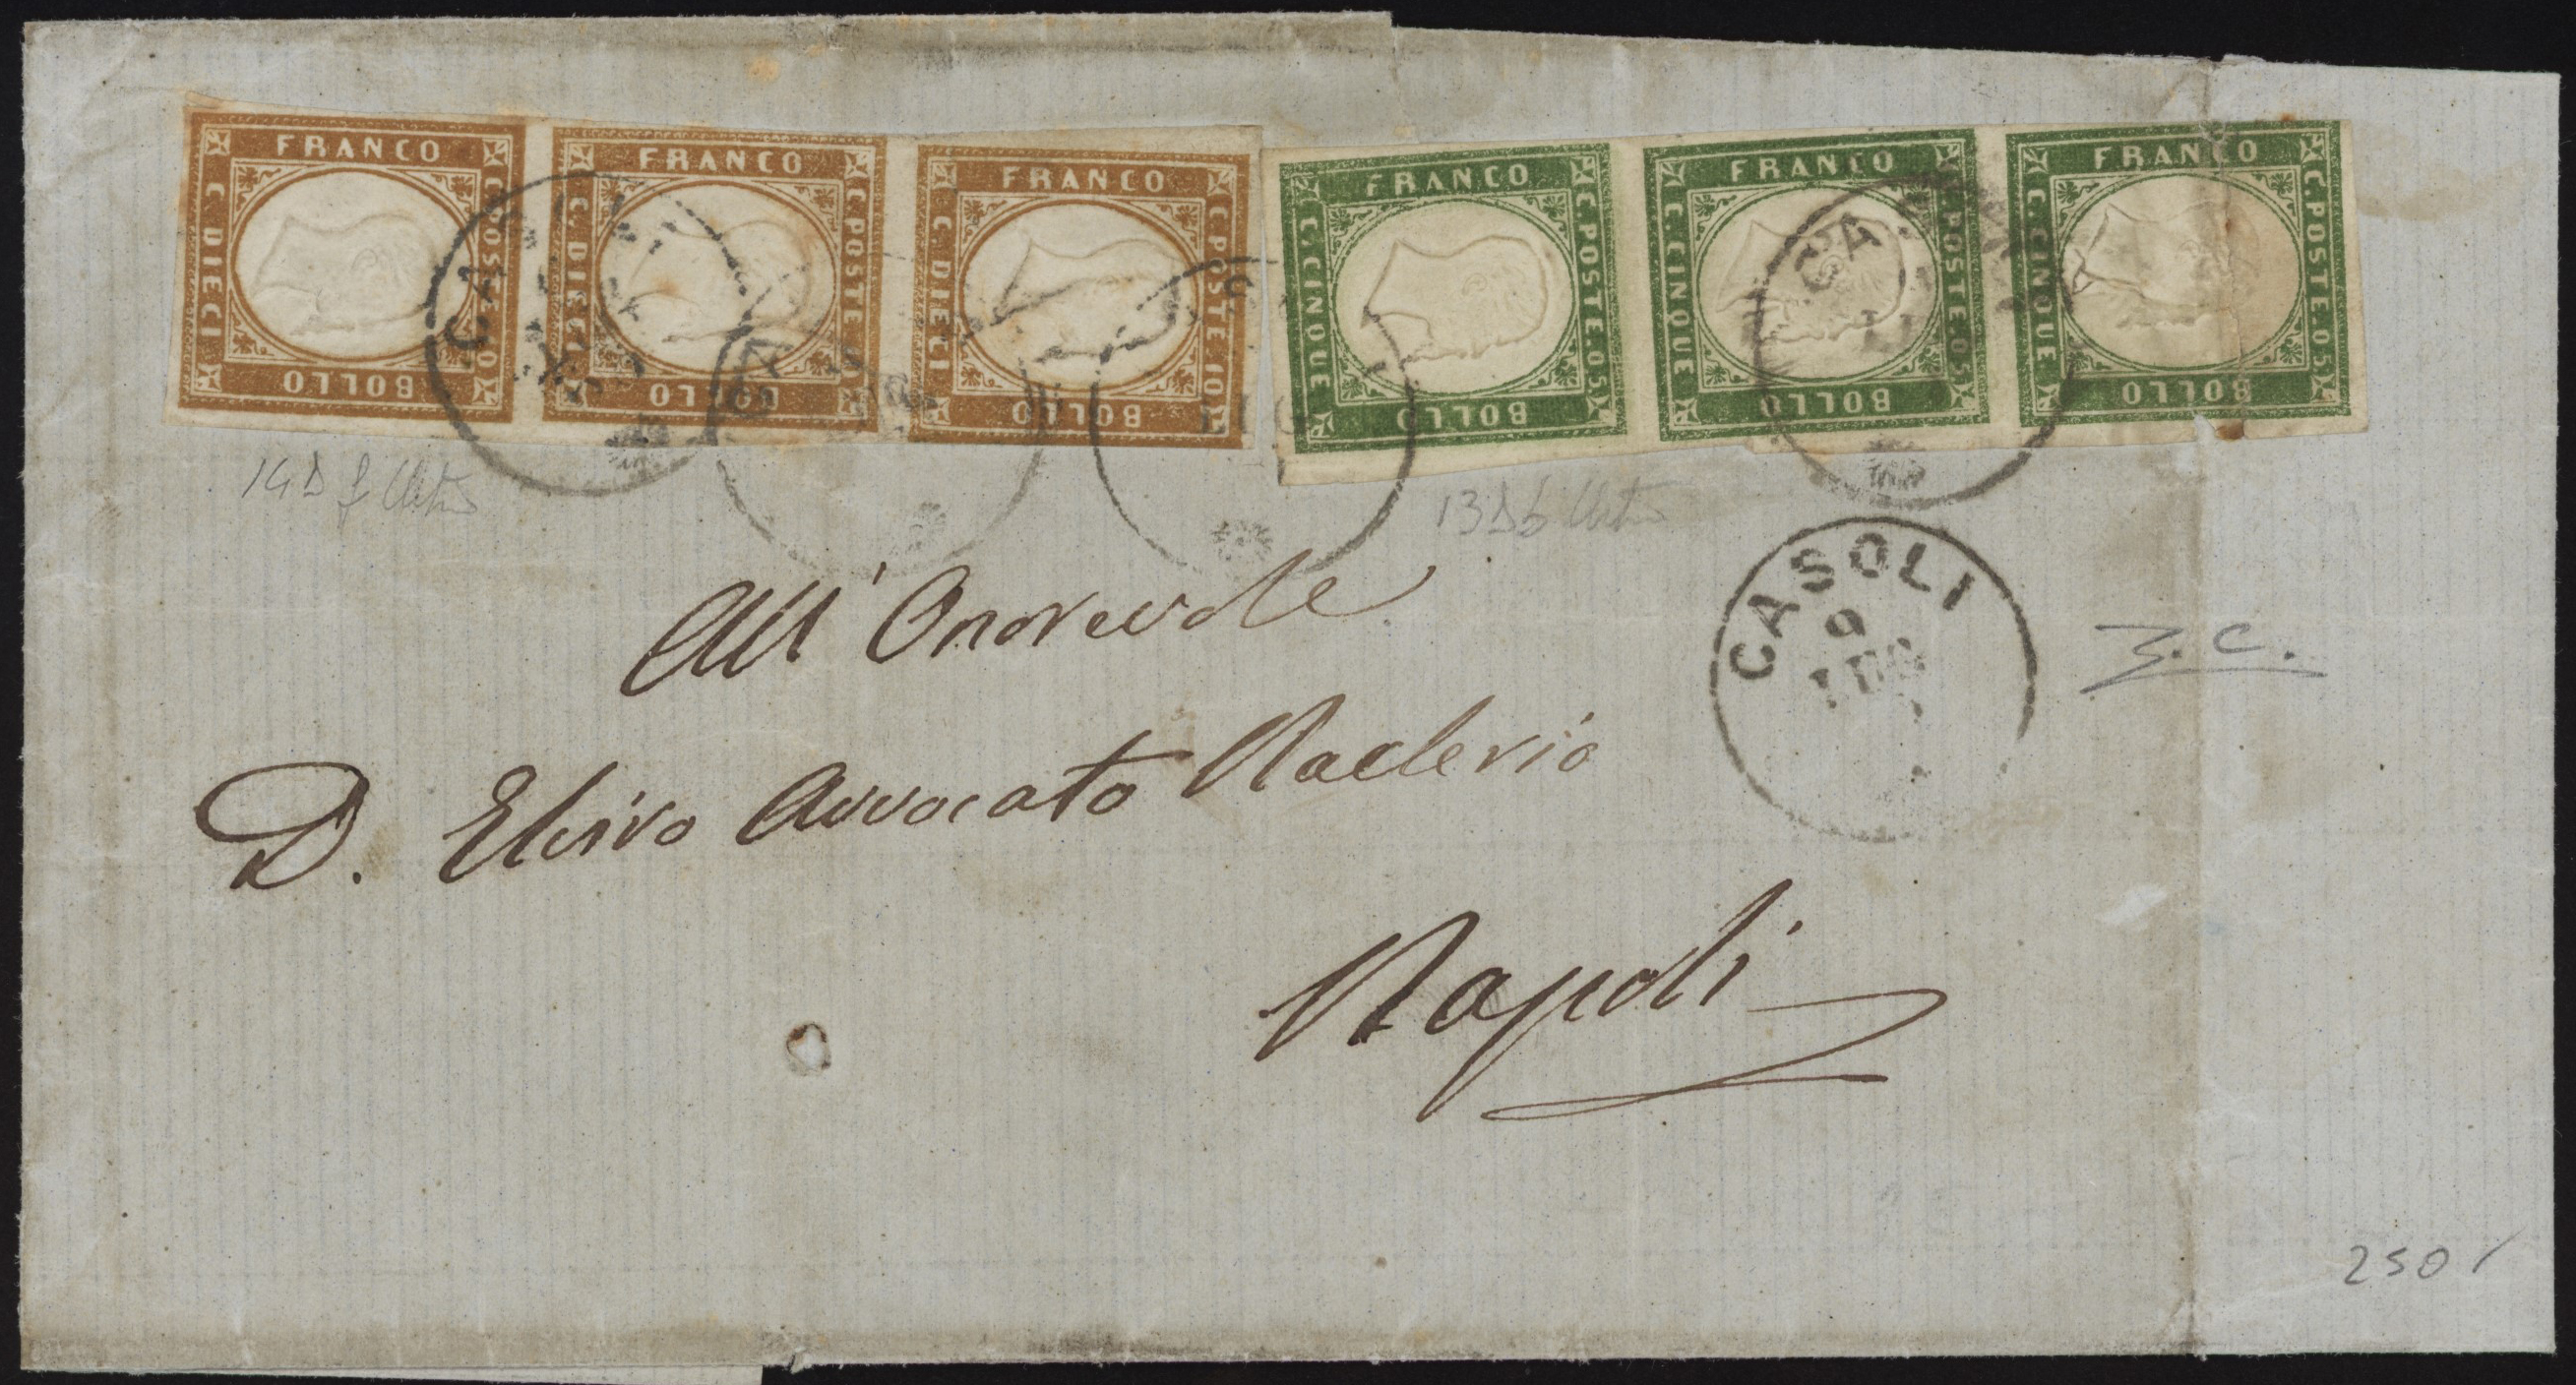 FRANCO
C. DIECI
C. POSTE. 10
BOLLO
FRANCO
C. DIECI
C. POSTE. 10
BOLLO
FRANCO
C. DIECI
C. POSTE. 10
BOLLO
FRANCO
C. CINQUE
C. POSTE. 05
BOLLO
FRANCO
C. CINQUE
C. POSTE. 05
BOLLO
FRANCO
C. CINQUE
C. POSTE. 05
BOLLO
LUG
CASOLI
9
LUG
All' Onorevole
D. Elisivo Avvocato Naclerio
Napoli
250